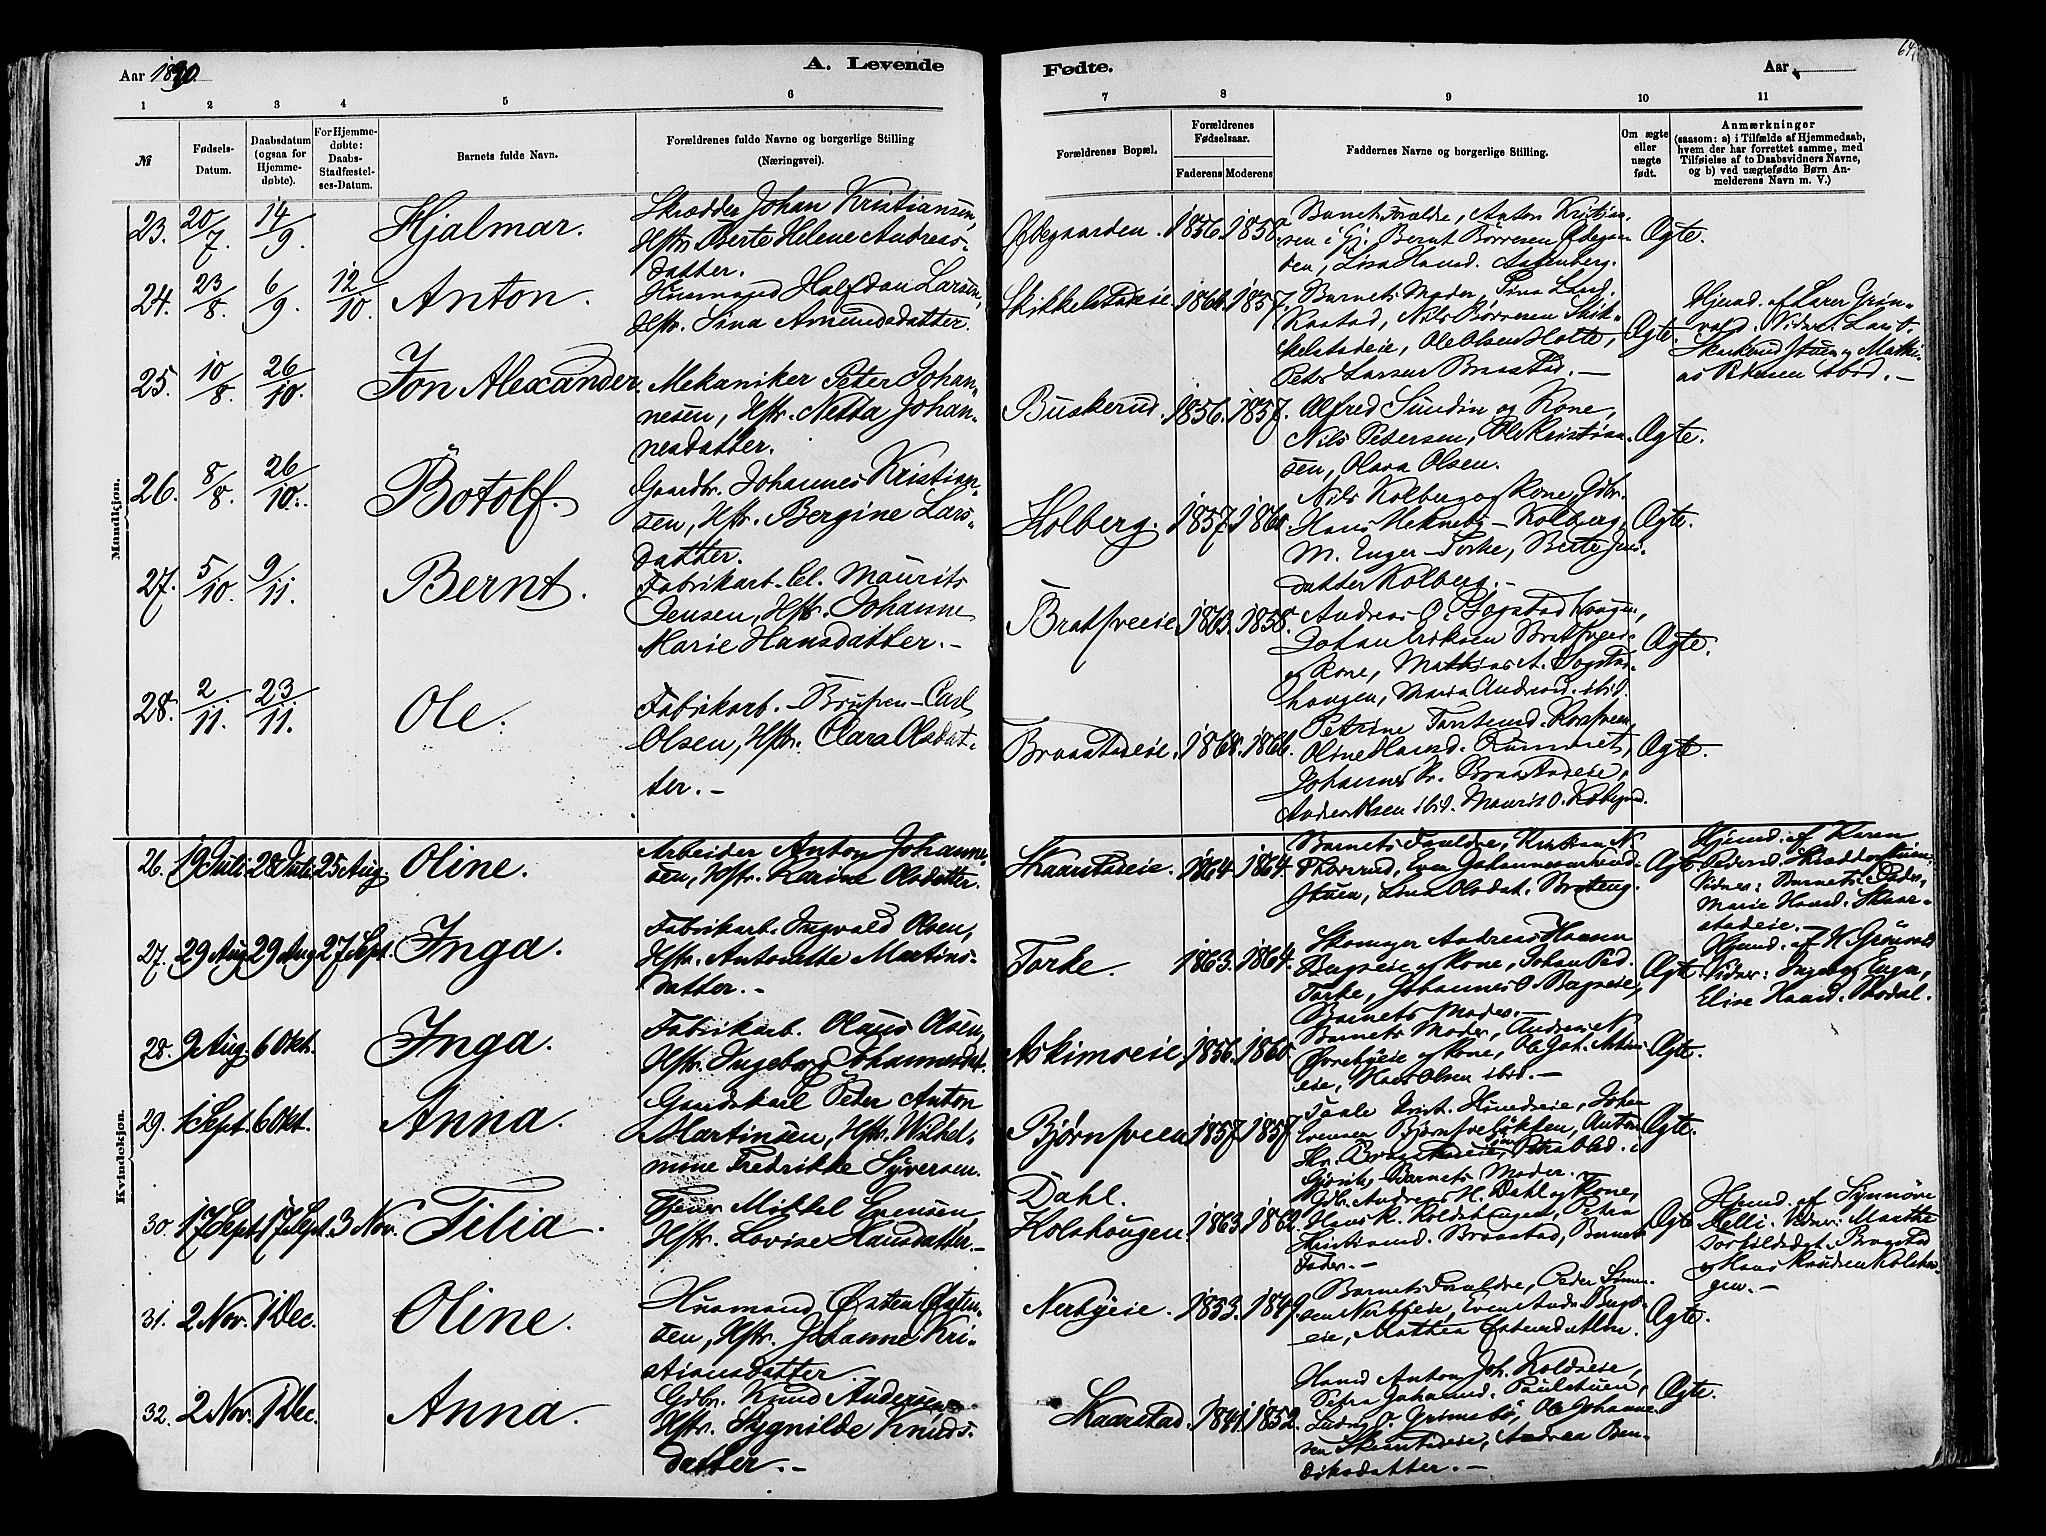 Aar 1890.
A. Levende
Fødte.
Aar
64
1 2 3 4 5 6 7 8 9 10 11
№
Fødsels-
Datum.
Daabsdatum
(ogsaa for
Hjemme-
døbte).
For Hjemme-
døbte:
Daabs-
Stadfæstel-
ses-Datum.
Barnets fulde Navn.
Forældrenes fulde Navne og borgerlige Stilling
(Næringsvei).
Forældrenes Bopæl.
Forældrenes
Fødselsaar.
Faderens Moderens
Faddernes Navne og borgerlige Stilling.
Om ægte
eller
uægte
født.
Anmærkninger
(saasom: a) i Tilfælde af Hjemmedaab,
hvem der har forrettet samme, med
Tilføielse af to Daabsvidners Navne,
og b) ved uægtefødte Børn An-
melderens Navn m. V.)
Mandkjøn.
23. 20/7. 14/9. Hjalmar.
Skrædder Johan Kristiansen,
Hstr. Berte Helene Andreas-
datter.
Ødegaarden. 1856. 1858.
Barnets Forældre, Anton Kristian-
sen i Gj. Bernt Børresen Ødegaar-
den, Lisa Hansd.
Ægte.
24. 23/8. 6/9. 12/10. Anton.
Husmand Halfdan Larsen,
Hstr. Sina Amundsdatter.
Skikkelstadeie. 1866. 1857.
Barnets Moder, Sina Larsd.
Kaastad, Nils Børresen Skik-
kelstadeie, Ole Olsen Holte,
Peter Larsen Braastad.—
Ægte.
Hjemd. af Lærer Grøn-
vold. Vidner: Laurits
25. 10/8. 26/10. Jon Alexander.
Mekaniker Peter Johan-
nesen, Hstr. Netta Johan-
nesdatter.
Buskerud. 1856. 1857.
Alfred Sundin og Kone,
Nils Petersen, Ole Kristian-
sen, Olava Olsen.
Ægte.
26. 8/8. 26/10. Botolf.
Gaardbr. Johannes Kristian-
sen, Hstr. Bergine Lars-
datter.
Kolberg. 1857. 1860.
Nils Kolberg og Kone, Gdbr.
Hans Hekneby - Kolberg,
M. Enger - Torke, Berte
datter Kolberg.-
Ægte.
27. 5/10. 9/11. Bernt.
Fabrikarb. Cel. Maurits
Jensen, Hstr. Johanne
Marie Hansdatter.-
Bratsveeie. 1863. 1858.
Andreas O. Sogstadhougen,
Johan Eriksen Bratsveeie
og Kone, Mathias A. Sogstad-
hougen, Maria Andreasd. ibid.
Ægte.
28. 2/11. 23/11. Ole.
Fabrikarb. - Carl
Olsen, Hstr. Clara Olsdat-
ter.-
Braastadeie. 1868. 1866.
Petrine
Oline Hansd. Rummet,
Johannes Kr. Braastadeie,
Anders Olsen ibid. Maurits O.
Ægte.
Kvindekjøn.
26. 19 Juli 28 Juli 25 Aug. Oline.
Arbeider Anton Johanne-
sen, Hstr. Karine Olsdatter.
Skaarstadeie. 1864. 1864.
Barnets Forældre, Kristian N.
Thorsrud, Even Johannesen
stuen, Lina Olsdat. Brateng.
Ægte
Hjemd. af Karen
Pedersd.
Vidner: Barnets Fader,
Marie Hansd. Skaar-
stadeie.
27. 29 Aug 29 Aug 27 Sept. Inga.
Fabrikarb. Ingvald Olsen,
Hstr. Antonette Martins-
datter.-
Torke. 1863. 1864.
Skomager Andreas Hansen
Bugseie og Kone, Johan Ped.
Torke, Johannes O. Bugseie,
Barnets Moder.—
Ægte
Hjemd. af H. Grønvold
Vidner: Ingeborg Enga,
Elise Hansd.
28. 9 Aug 6 Okt. Inga.
Fabrikarb. Olaus Olsen,
Hstr. Ingeborg Johannesdat.
Askimseie. 1856. 1860.
Barnets Moder, Andreas N.
og Kone, Ole Joh. Askims-
eie, Hans Olsen ibid.—
Ægte.
29. 1 Sept. 6 Okt. Anna.
Gaardskarl Peder Anton
Martinsen, Hstr. Wilhel-
mine Fredrikke Syversen.
Bjørnsveen 1857. 1857.
Evensen Anton
Kr. Braastadeie, Petra Olsd. i
Gjøvik, Barnets Moder.-
Ægte.
30. 17 Sept 17 Sept. 3 Nov. Tilia.
Tjener Mikkel Evensen,
Hstr. Lovise Hansdatter.-
Dahl.
Kolshougen. 1863. 1862.
Gdbr. Andreas H. Dahl og Kone,
Hans K. Kolshougen, Petra
Kristiansd. Braastad, Barnets
Fader.—
Ægte
Hjemd. af Synnøve
Melli. Vidner: Marthe
Torkildsdat. Braastad
og Hans Knudsen Kolshou-
gen.—
31. 2 Nov. 1 Dec. Oline.
Husmand Østen Østen-
sen, Hstr. Johanne Kri-
stiansdatter.
Nerbyeie. 1853. 1849.
Barnets Forældre, Peder Simen-
sen Nerbyeie, Even Andr. Bugs-
eie, Mathea
Ægte.
32. 2 Nov. 1 Dec. Anna.
Gdbr. Knud Andersen,
Hstr. Sygnilde Knuds-
datter.-
Skaarstad. 1841. 1852.
Anton Joh. Koldseie,
Petra Johannd. Paulstuen,
Ludvig O. Grimsbø, Ole Johanne-
sen Skaarstadeie, Andrea Ben-
diksdatter.-
Ægte.